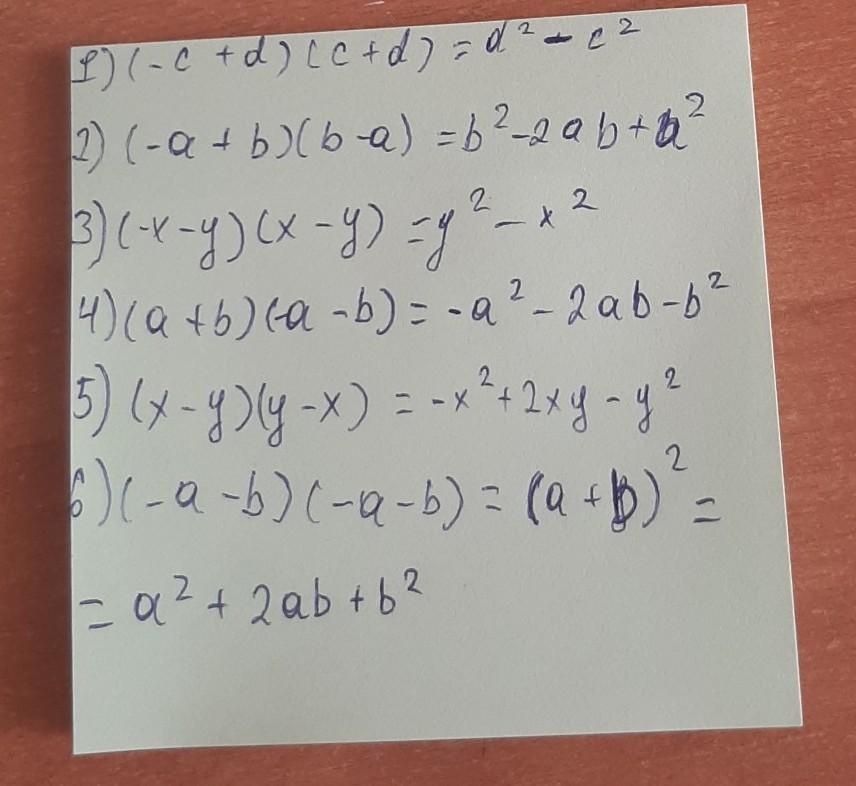 1) (-c + d) (c + d) = d² - c²
2) (-a + b)(b - a) = b² - 2ab + a²
3) (-x - y) (x - y) = y² - x²
4) (a + b) (-a - b) = -a² - 2ab - b²
5) (x - y)(y - x) = -x² + 2xy - y²
6) (-a - b) (-a - b) = (a + b)² =
= a² + 2ab + b²